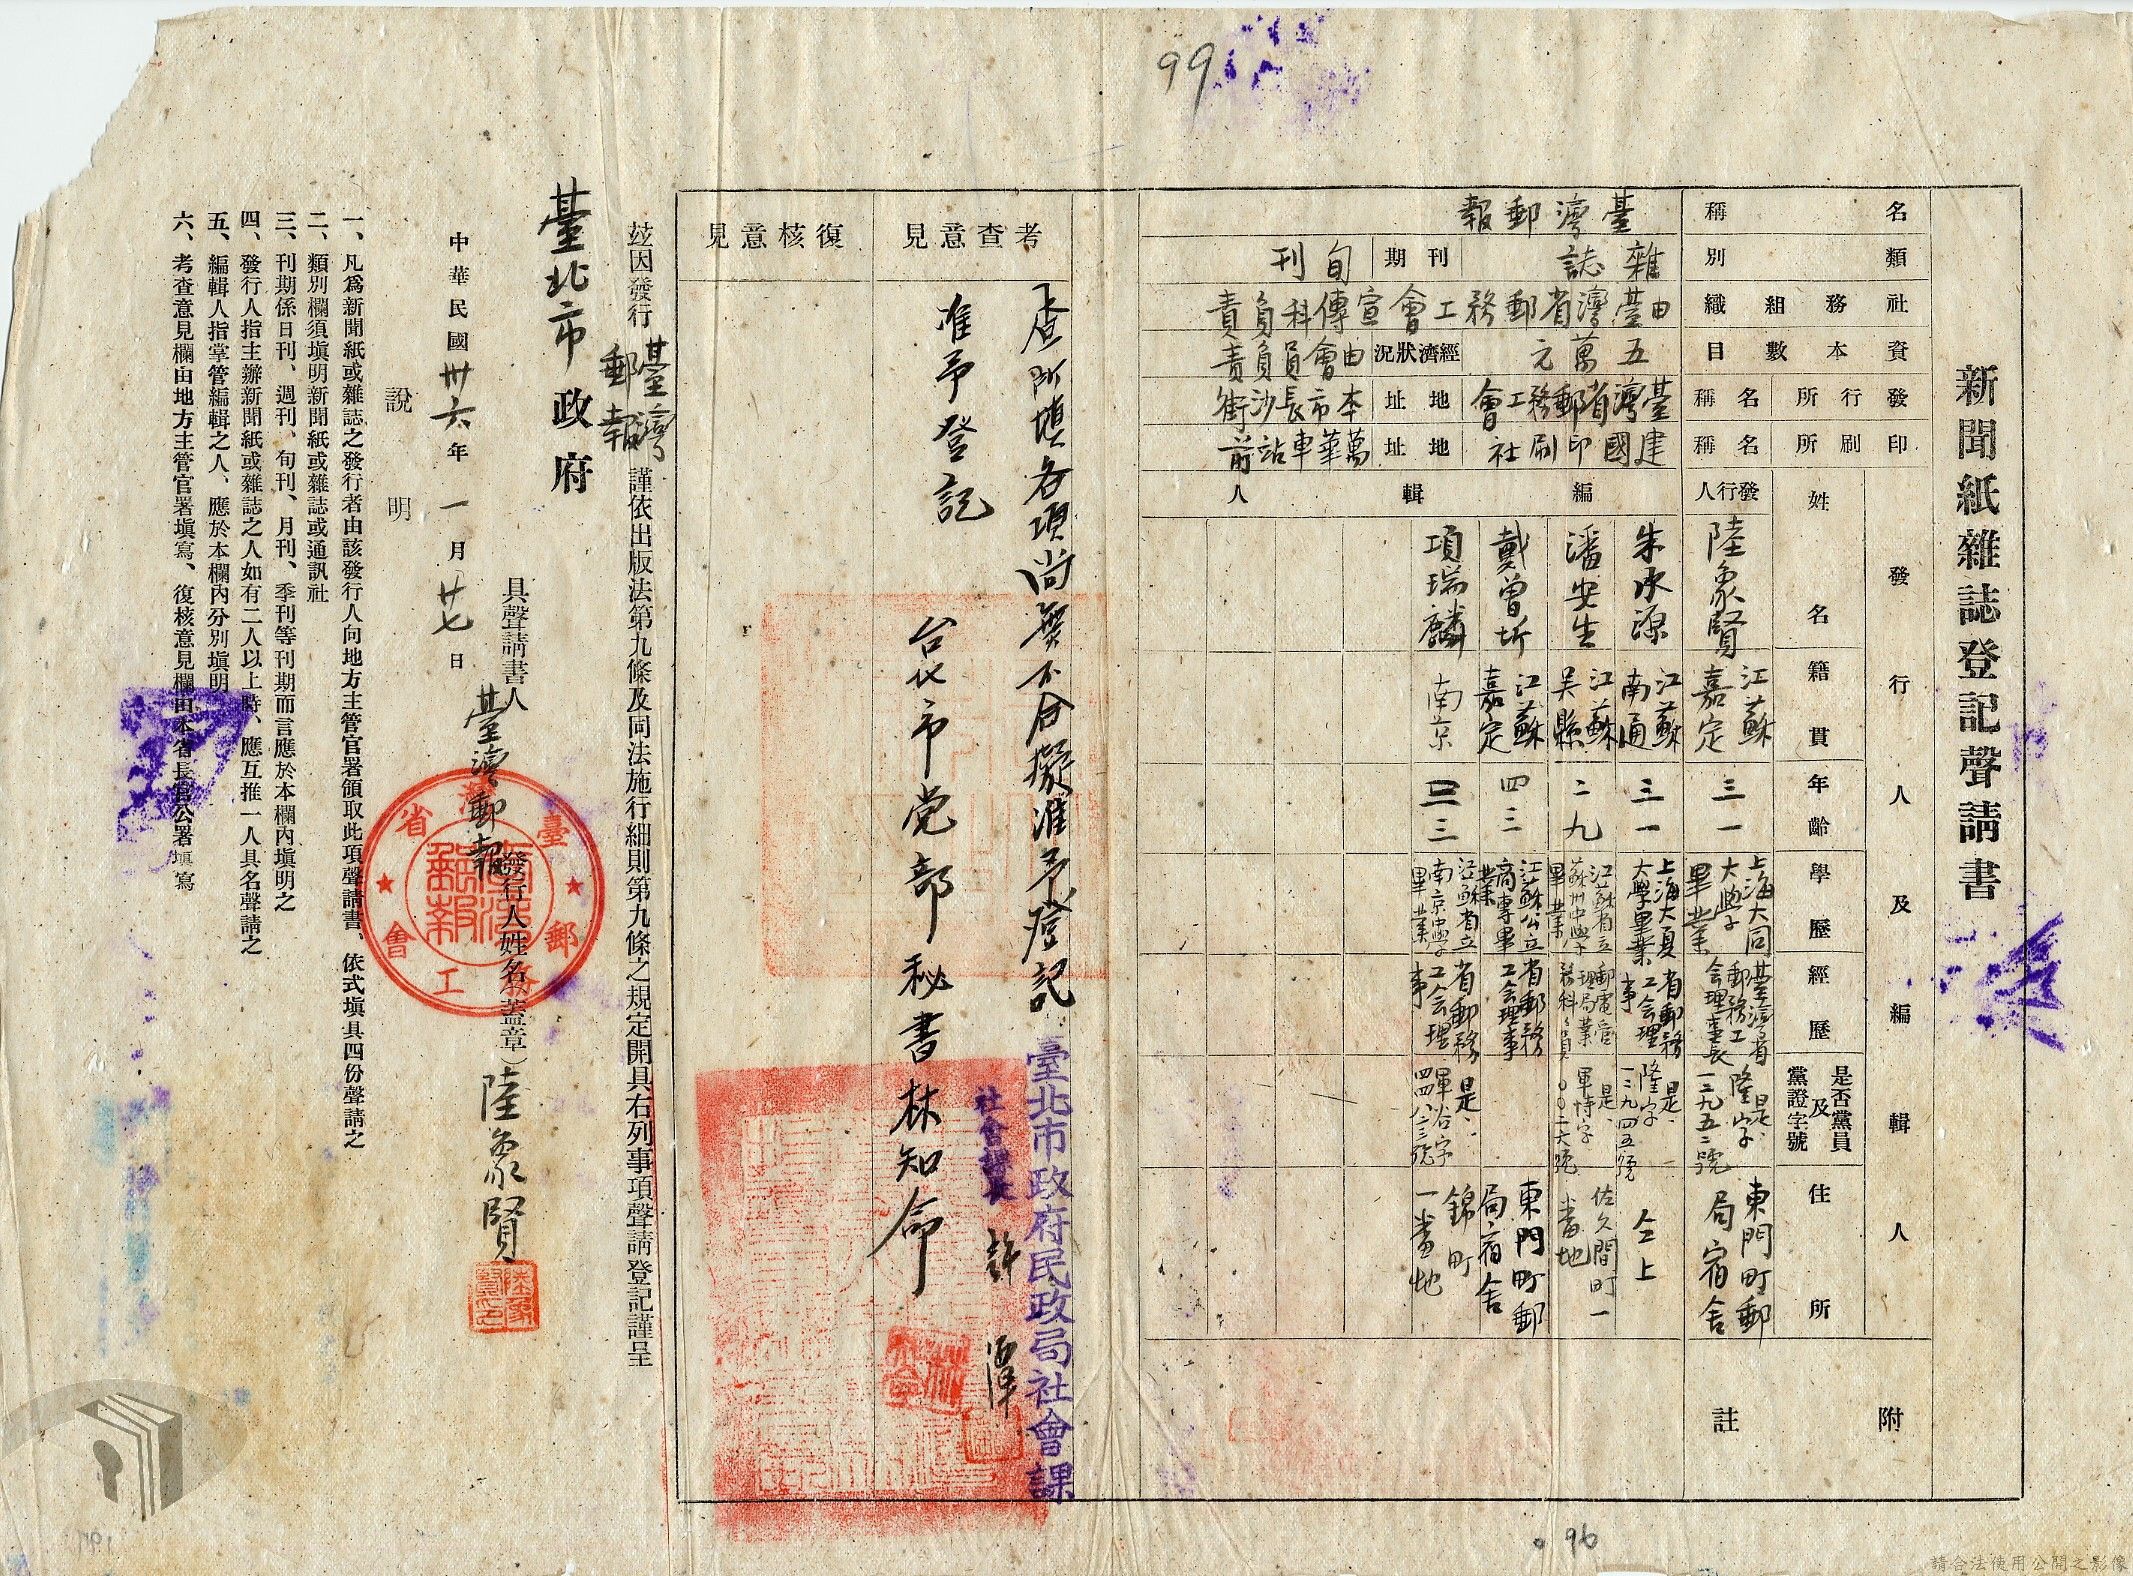 99
新聞紙雜誌登記聲請書
名稱 臺灣郵報
類別 雜誌 刊期 旬刊
社務組織 由臺灣省郵務工會宣傳科負責
資本數目 五萬元 經濟狀況 由會員負責
發行所名稱 臺灣省郵務工會 地址 本市長沙街
印刷所名稱 建國印刷社 地址 萬華車站前
發行人及編輯人
姓名 籍貫 年齡 學歷 經歷 是否黨員及黨證字號 住所
發行人 陸象賢 江蘇嘉定 三一 上海大同大學畢業 臺灣省郵務工會理事長 是、隆字一二九五二號 東門町郵局宿舍
編輯人
朱水源 江蘇南通 三一 上海大夏大學畢業 省郵務工会理事 是、隆字一二九四五號 仝上
潘安生 江蘇吳縣 二九 江蘇省立蘇州中學畢業 郵電管理局業務科員 是、軍特字〇〇二六號 佐久間町一番地
戴曾圻 江蘇嘉定 四三 江蘇公立商專畢業 省郵務工会理事 東門町郵局宿舍
項瑞麟 南京 三三 江蘇省立南京中學畢業 省郵務工会理事 是、軍谷字四四八三號 錦町一番地
附註
考查意見
上查所填各項尚無不合擬准予登記
臺北市政府民政局社會課
社會課長 許 潭
准予登記
台北市党部秘書林知命
復核意見
茲因發行臺灣郵報謹依出版法第九條及同法施行細則第九條之規定開具右列事項聲請登記謹呈
臺北市政府
具聲請書人 臺灣郵報 發行人姓名（蓋章）陸象賢
臺灣省郵務工會
中華民國卅六年一月廿七日
說明
一、凡爲新聞紙或雜誌之發行者由該發行人向地方主管官署領取此項聲請書、依式塡具四份聲請之
二、類別欄須塡明新聞紙或雜誌或通訊社
三、刊期係日刊、週刊、旬刊、月刊、季刊等刊期而言應於本欄內塡明之
四、發行人指主辦新聞紙或雜誌之人如有二人以上時、應互推一人具名聲請之
五、編輯人指掌管編輯之人、應於本欄內分別塡明
六、考查意見欄由地方主管官署塡寫、復核意見欄由本省長官公署塡寫
96
請合法使用公開之影像